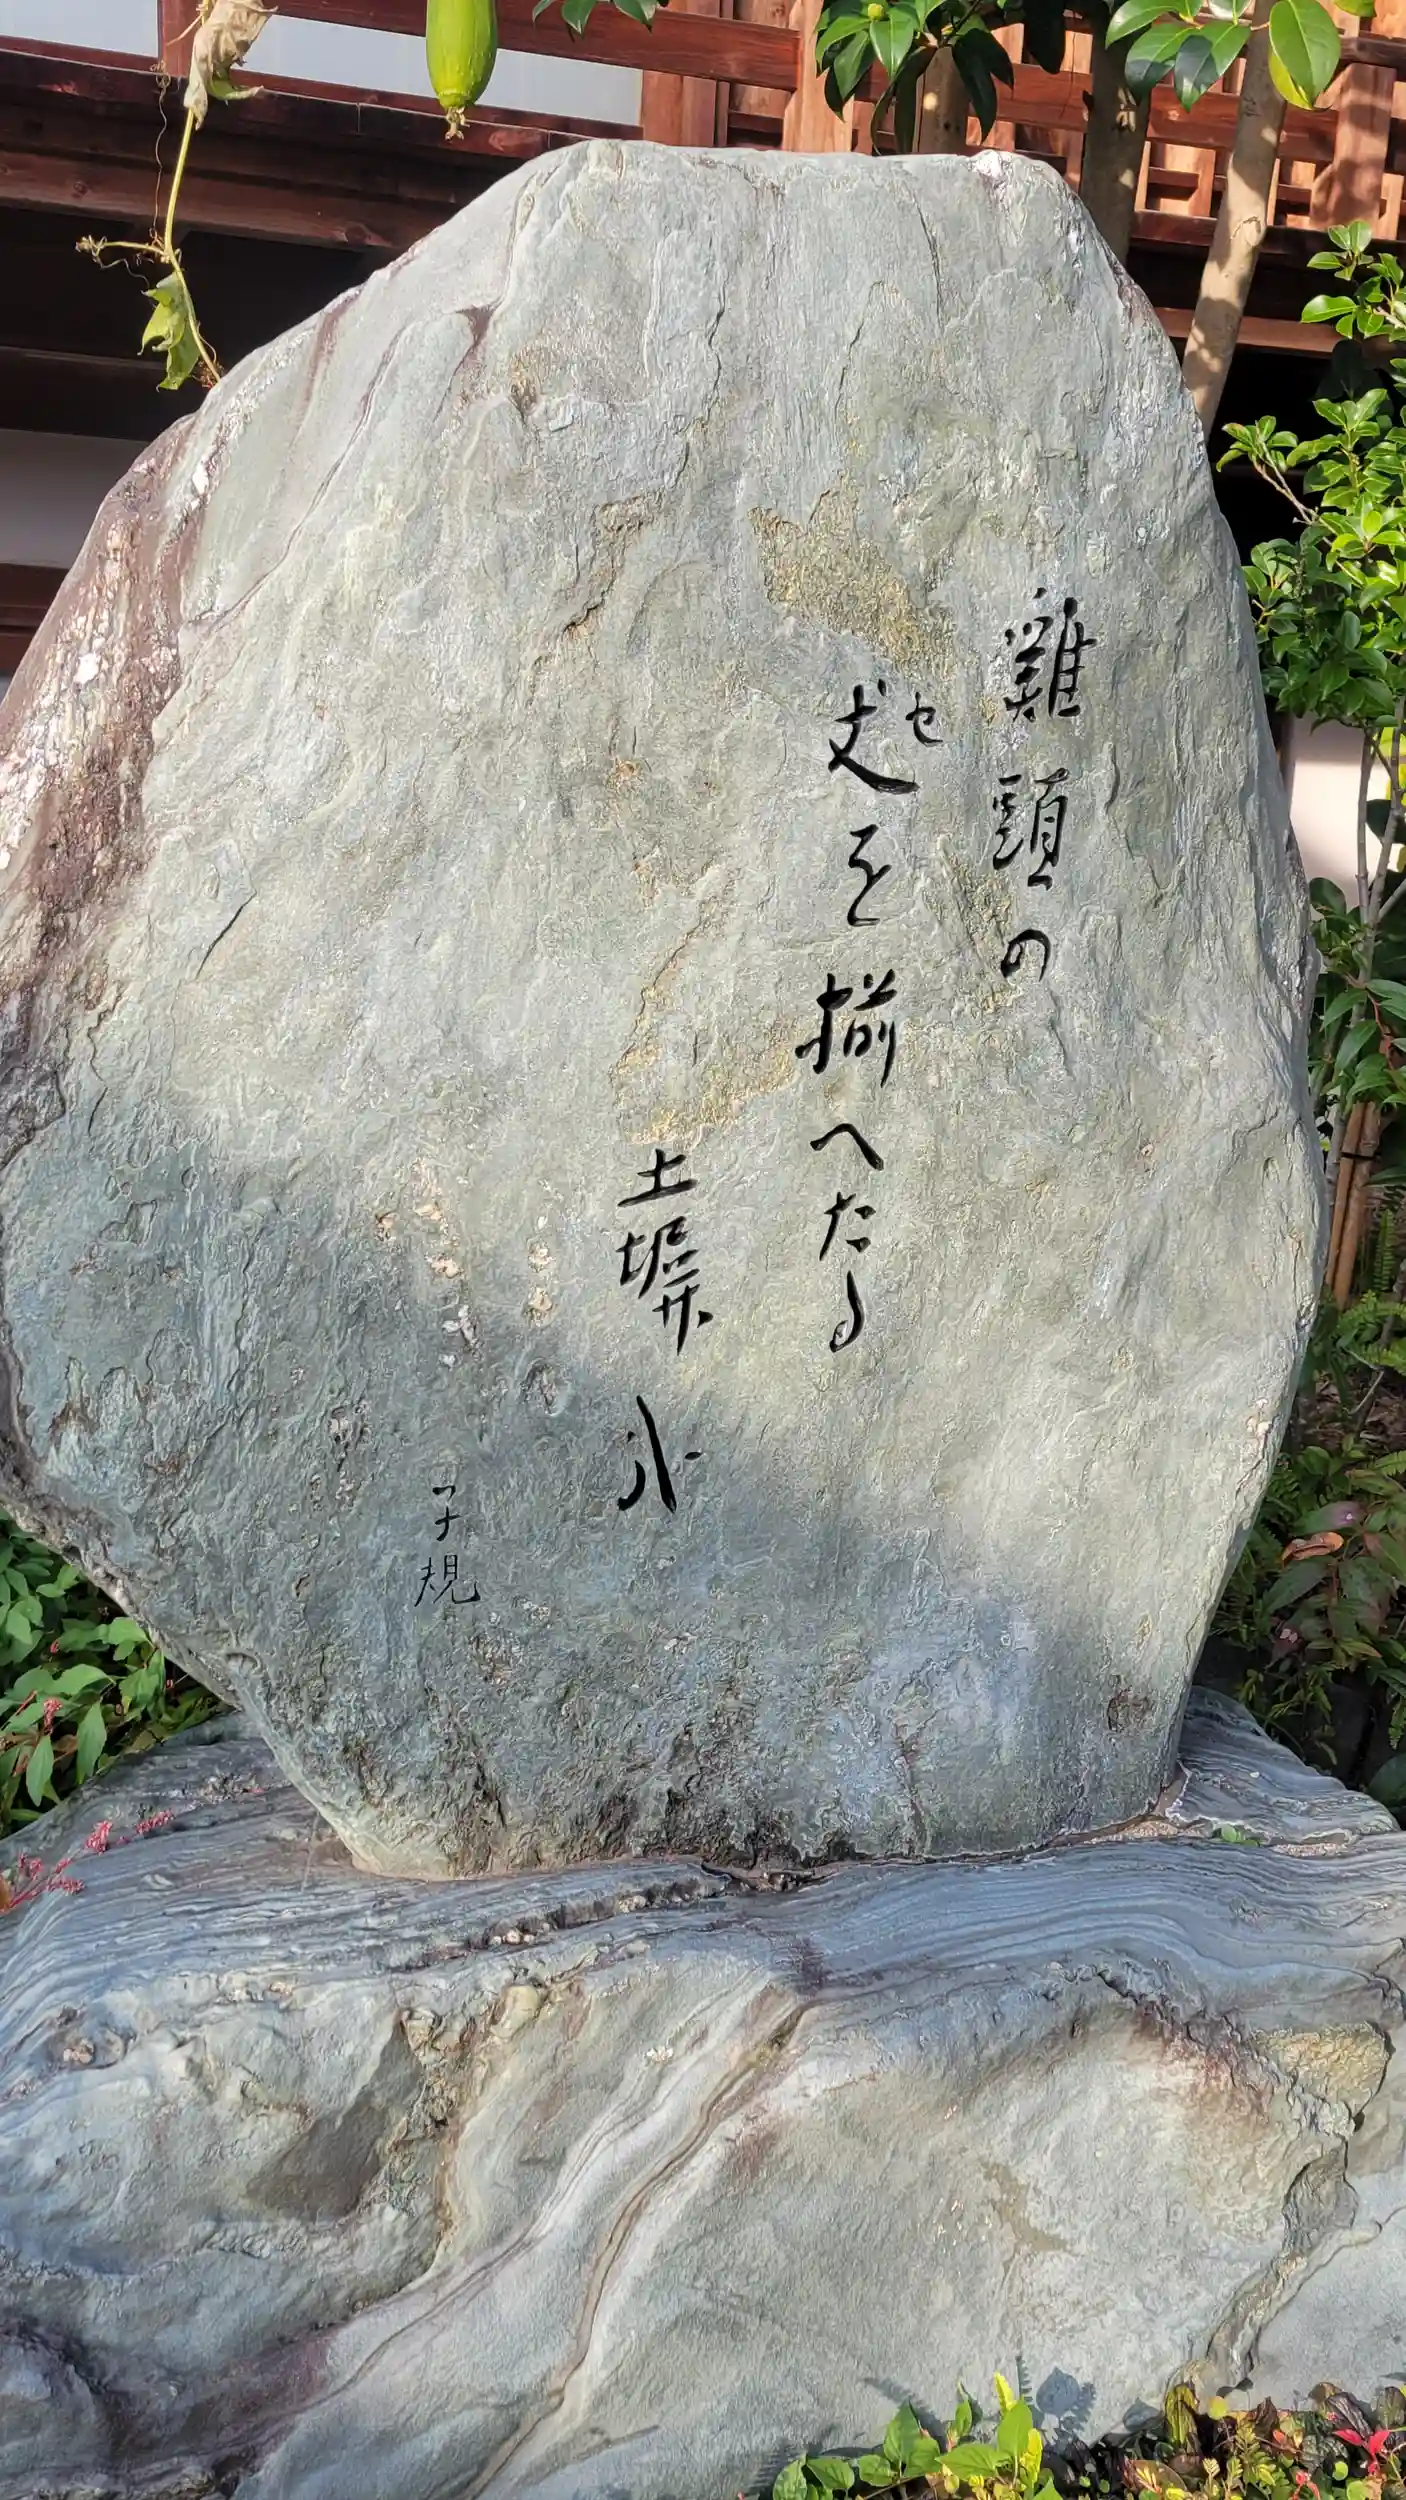 雞頭の
丈を揃へたる
セ
土塀哉
子規